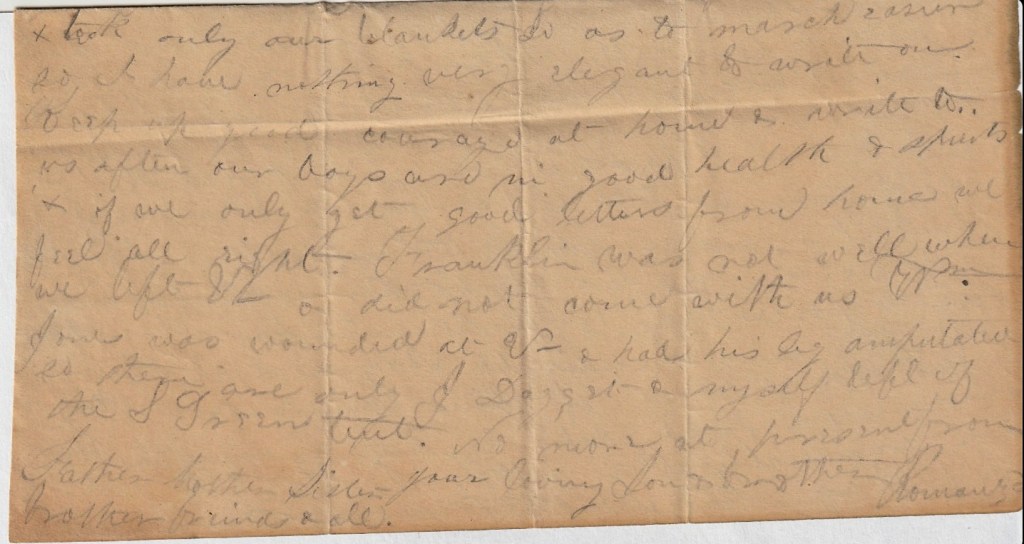 & took only our blankets so as to march easier
so I have nothing very elegant to write on
Keep up good courage at home & write to
us often our boys are in good health & spirits
& if we only get good letters from home we
feel all right. Franklin was not well when
we left & did not come with us Wm
Jones was wounded at & had his leg amputated
so there are only J Dogget & myself left of
the S Greens No more at present from
your loving Son & brother
Father Mother Sister
brother friend & all.